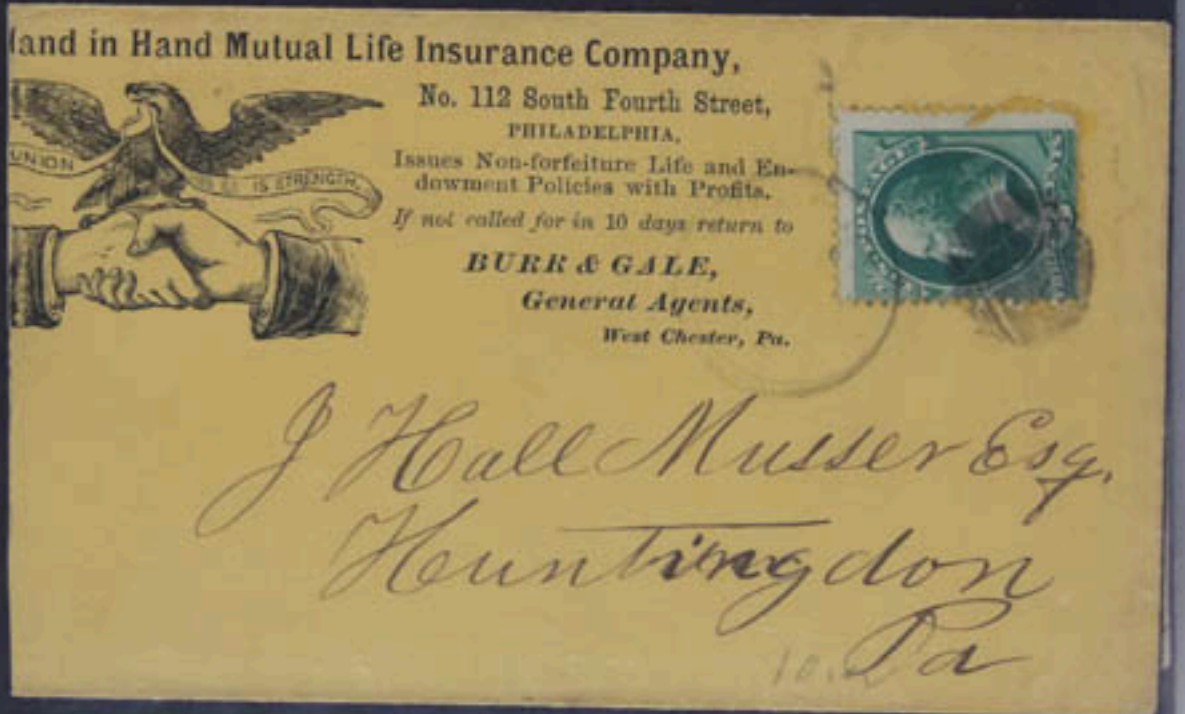 Hand in Hand Mutual Life Insurance Company,
No. 112 South Fourth Street,
PHILADELPHIA,
Issues Non-forfeiture Life and En-
dowment Policies with Profits.
If not called for in 10 days return to
BURR & GALE,
General Agents,
West Chester, Pa.
UNION
IS STRENGTH.
POSTAGE
CENTS
J Hall Musser Esq.
Huntingdon
Pa
10.